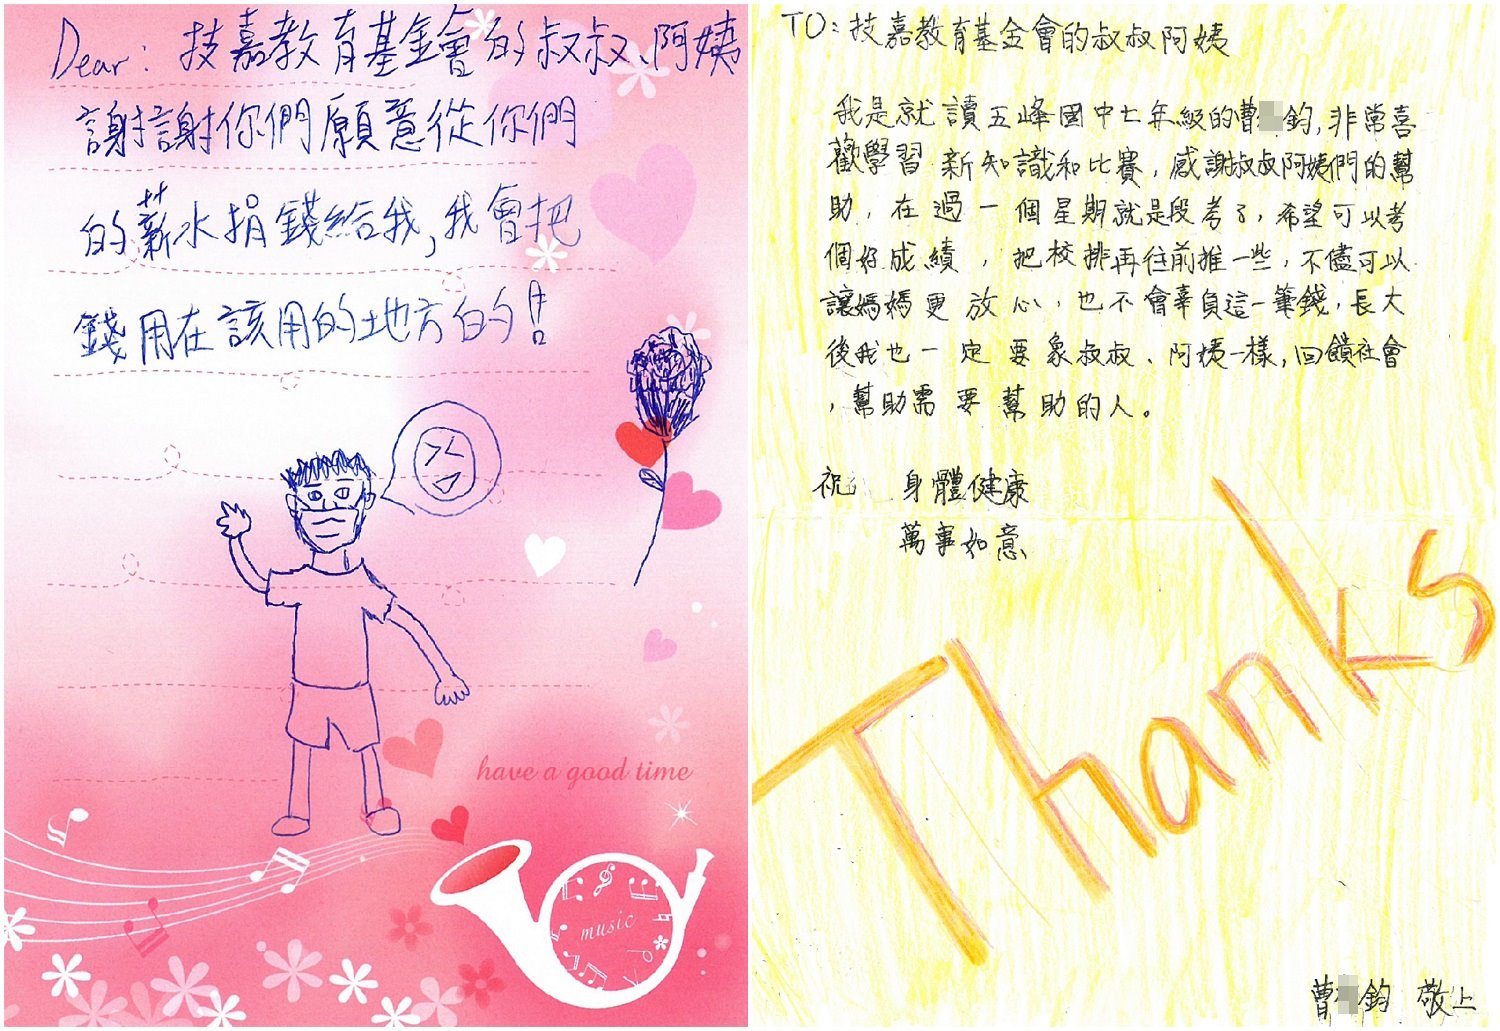 Dear: 技嘉教育基金會的叔叔、阿姨
謝謝你們願意從你們
的薪水捐錢給我,我會把
錢用在該用的地方的!
have a good time
music
TO:技嘉教育基金會的叔叔阿姨
我是就讀五峰國中七年級的曹 鈞,非常喜
歡學習新知識和比賽,感謝叔叔阿姨們的幫
助,在過一個星期就是段考了,希望可以考
個好成績,把校排再往前推一些,不儘可以
讓媽媽更放心,也不會辜負這一筆錢,長大
後我也一定要象叔叔、阿姨一樣,回饋社會
,幫助需要幫助的人。
祝 身體健康
萬事如意
Thanks
曹 鈞 敬上